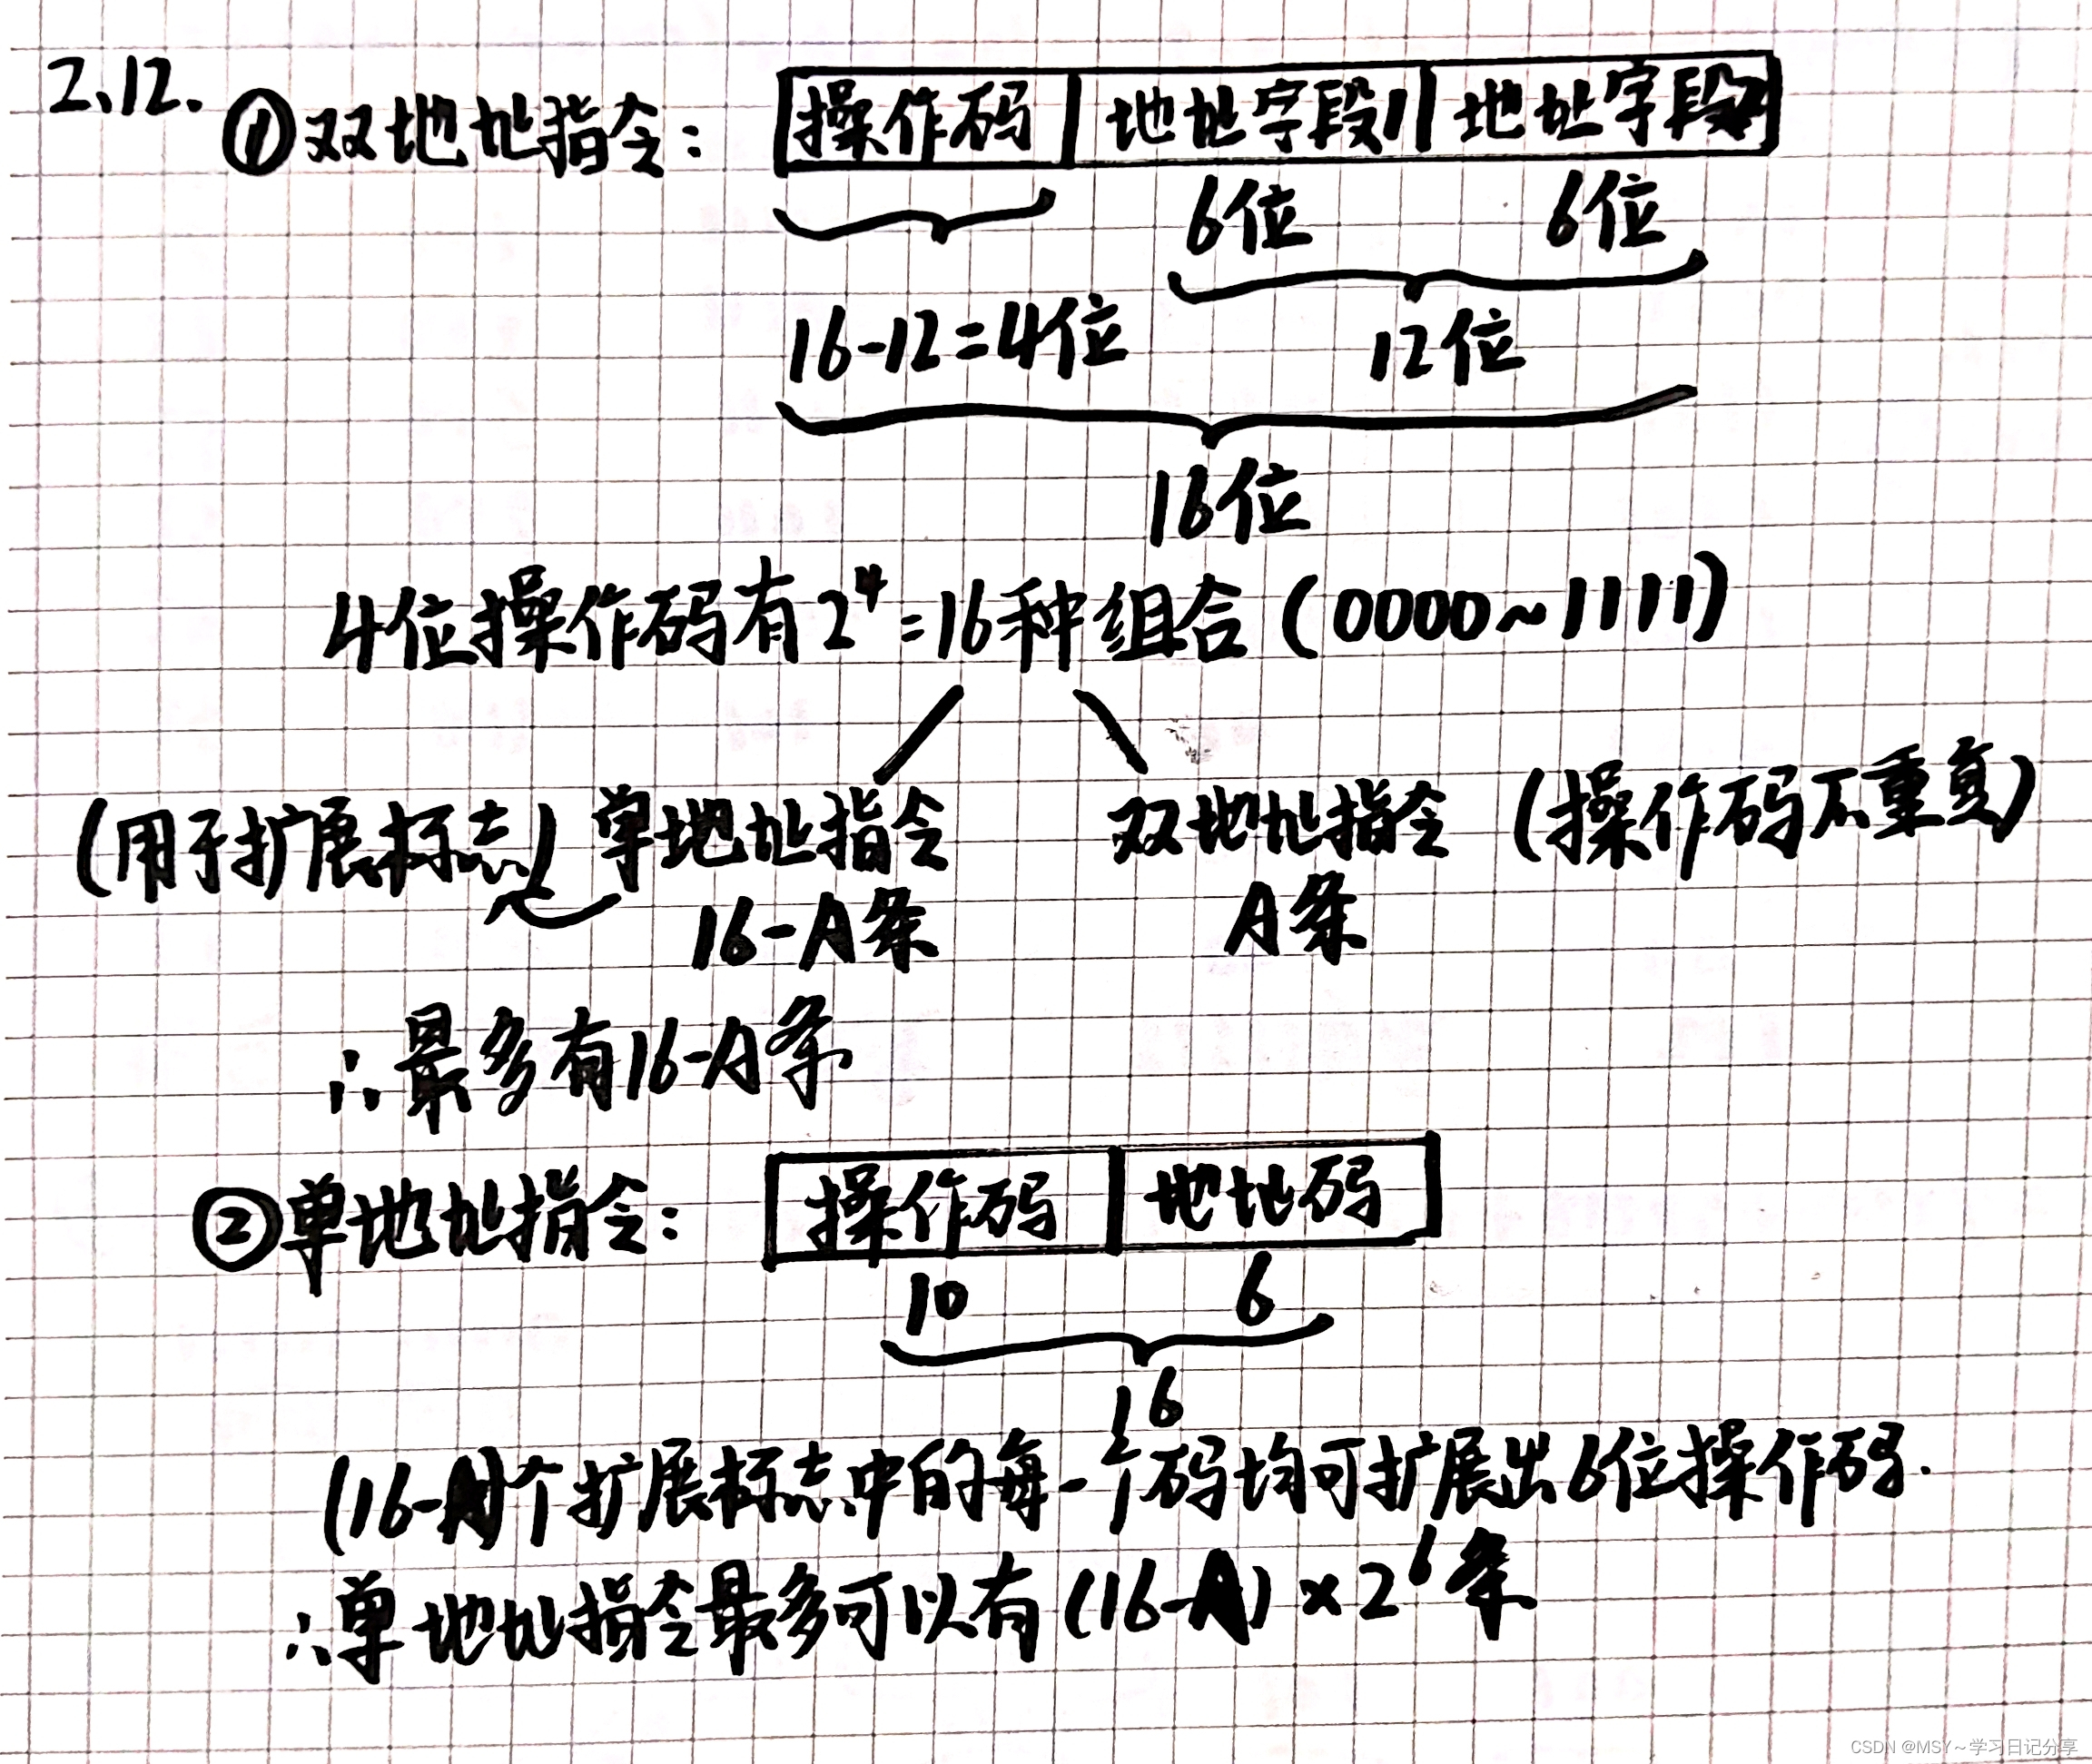 2.12.
①双地址指令：
操作码 地址字段1 地址字段2
6位 6位
16-12=4位 12位
16位
4位操作码有2⁴=16种组合(0000~1111)
(用于扩展标志) 单地址指令 双地址指令 (操作码不重复)
16-A条 A条
∴最多有16-A条
②单地址指令：
操作码 地址码
10 6
16
(16-A)个扩展标志中的每一个码均可扩展出6位操作码.
∴单地址指令最多可以有(16-A)×2⁶条
CSDN @MSY~学习日记分享